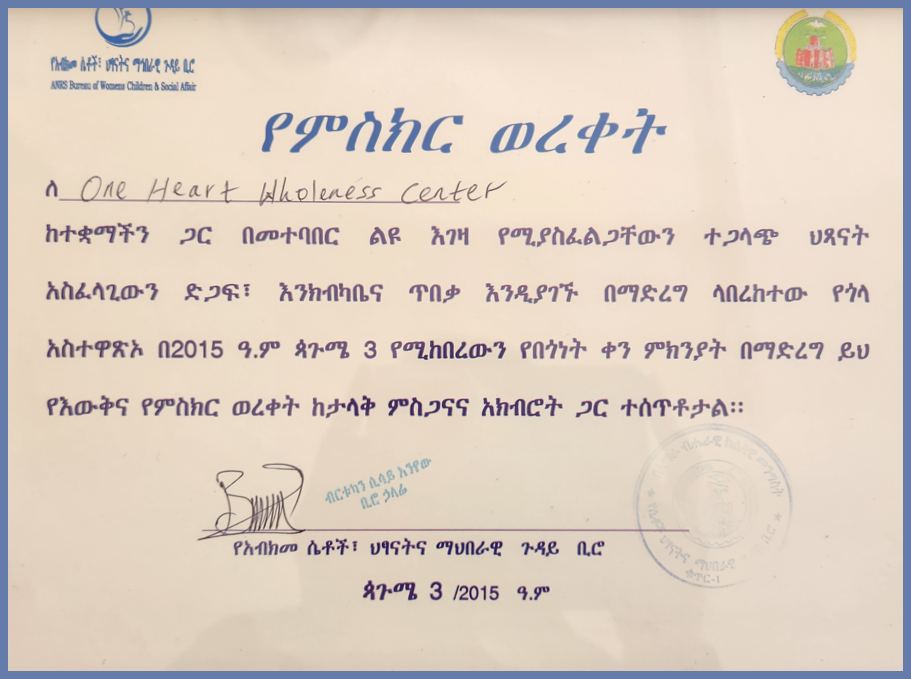 የአብክመ ሴቶች፣ ህፃናትና ማኅበራዊ ጉዳይ ቢሮ
ANRS Bureau of Womens Children & Social Affair
የምስክር ወረቀት
ለ One Heart Wholeness Center
ከተቋማችን ጋር በመተባበር ልዩ እገዛ የሚያስፈልጋቸውን ተጋላጭ ህጻናት
አስፈላጊውን ድጋፍ፣ እንክብካቤና ጥበቃ እንዲያገኙ በማድረግ ላበረከተው የጎላ
አስተዋጽኦ በ2015 ዓ.ም ጳጉሜ 3 የሚከበረውን የበጎነት ቀን ምክንያት በማድረግ ይህ
የእውቅና የምስክር ወረቀት ከታላቅ ምስጋናና አክብሮት ጋር ተሰጥቶታል፡፡
ብርቱካን ሲሳይ አንየው
ቢሮ ኃላፊ
የአብክመ ሴቶች፣ ህፃናትና ማህበራዊ ጉዳይ ቢሮ
ጳጉሜ 3 /2015 ዓ.ም